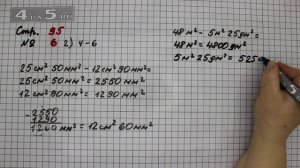 4A5.RU
Стр. 95
№ 6 2) 4-6
25 см² 50 мм² - 12 см² 90 мм² =
25 см² 50 мм² = 2550 мм²
12 см² 90 мм² = 1290 мм²
- 2550
1290
1260 мм² = 12 см² 60 мм²
48 м² - 5 м² 25 дм² =
48 м² = 4800 дм²
5 м² 25 дм² = 525 d